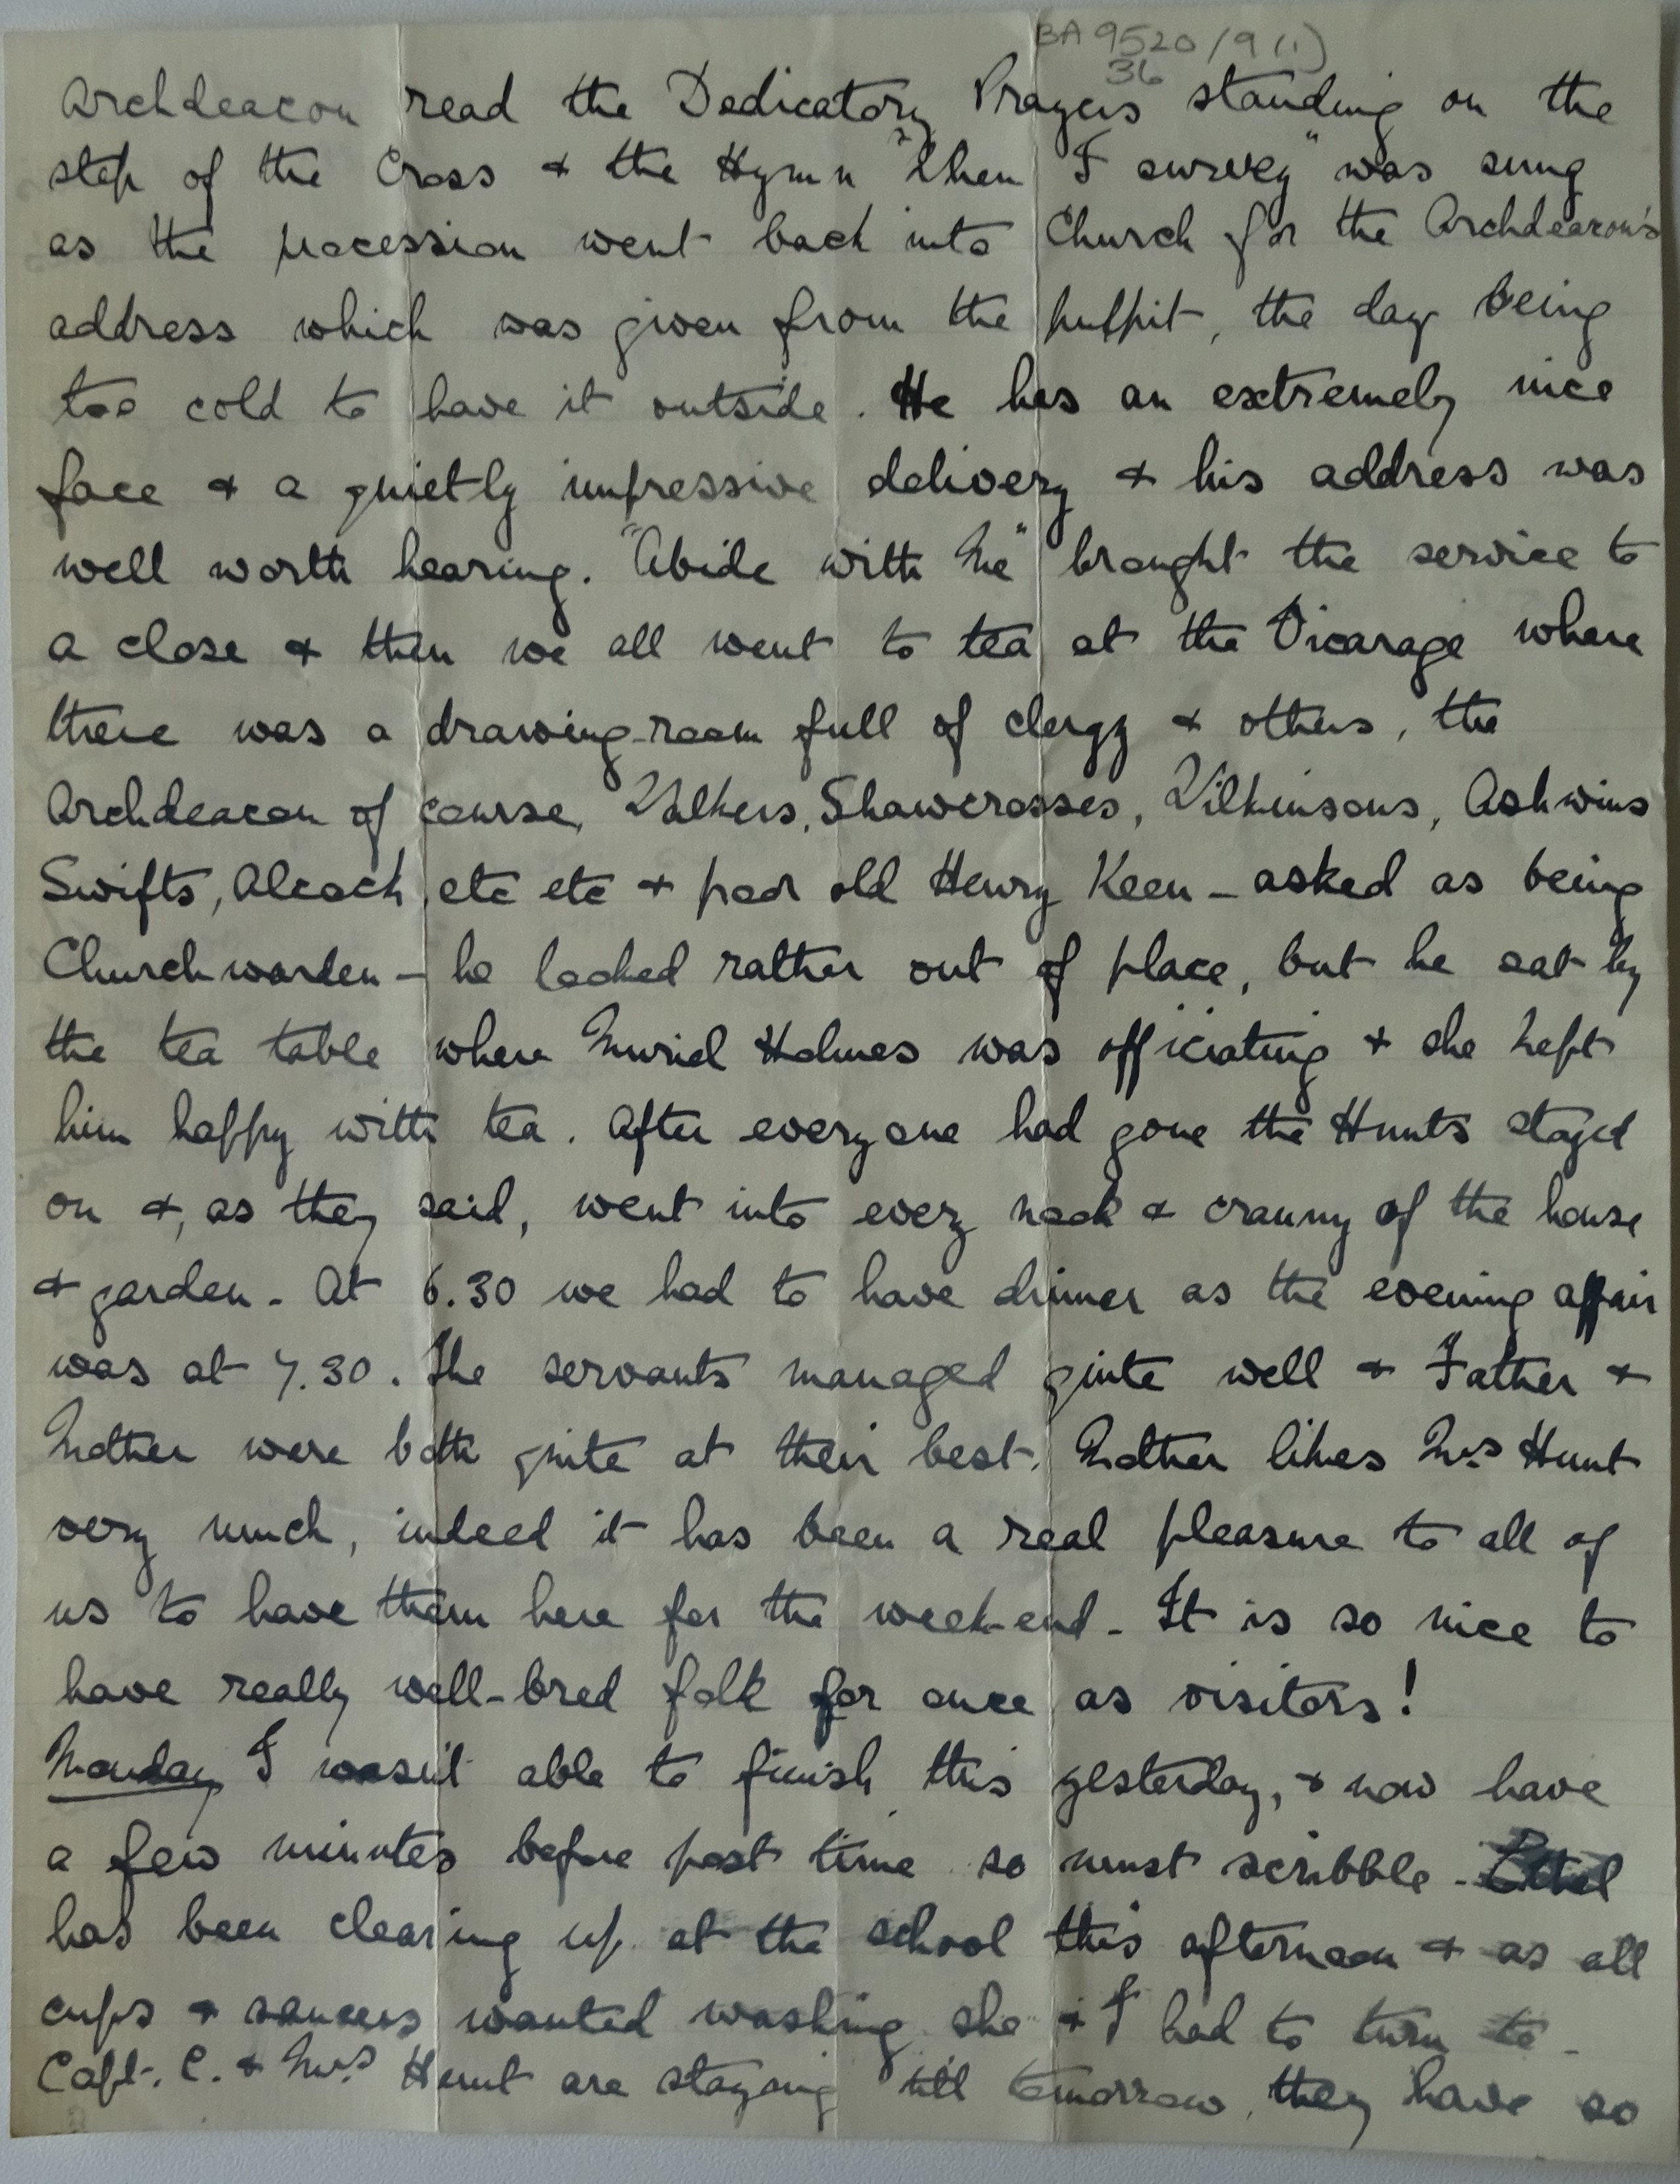 BA 9520/9(1)
36
Archdeacon read the Dedicatory Prayers standing on the
step of the Cross & the Hymn "When I survey" was sung
as the procession went back into Church for the Archdeacon's
address which was given from the pulpit, the day being
too cold to have it outside. He has an extremely nice
face & a quietly impressive delivery & his address was
well worth hearing. "Abide with Me" brought the service to
a close & then we all went to tea at the Vicarage where
there was a drawing-room full of clergy & others, the
Archdeacon of course, Walkers, Shawcrosses, Wilkinsons, Ashwins
Swifts, Alcock, etc etc & poor old Henry Keen - asked as being
Churchwarden - he looked rather out of place, but he sat by
the tea table where Muriel Holmes was officiating & she kept
him happy with tea. After everyone had gone the Hunts stayed
on &, as they said, went into every nook & cranny of the house
& garden - At 6.30 we had to have dinner as the evening affair
was at 7.30. The servants managed quite well & Father &
Mother were both quite at their best. Mother likes Mrs Hunt
very much, indeed it has been a real pleasure to all of
us to have them here for the week-end - It is so nice to
have really well-bred folk for once as visitors!
Monday I wasn't able to finish this yesterday, & now have
a few minutes before post time so must scribble - Ethel
has been clearing up at the school this afternoon & as all
cups & saucers wanted washing she & I had to turn to -
Capt. C. & Mrs Hunt are staying till tomorrow, they have so